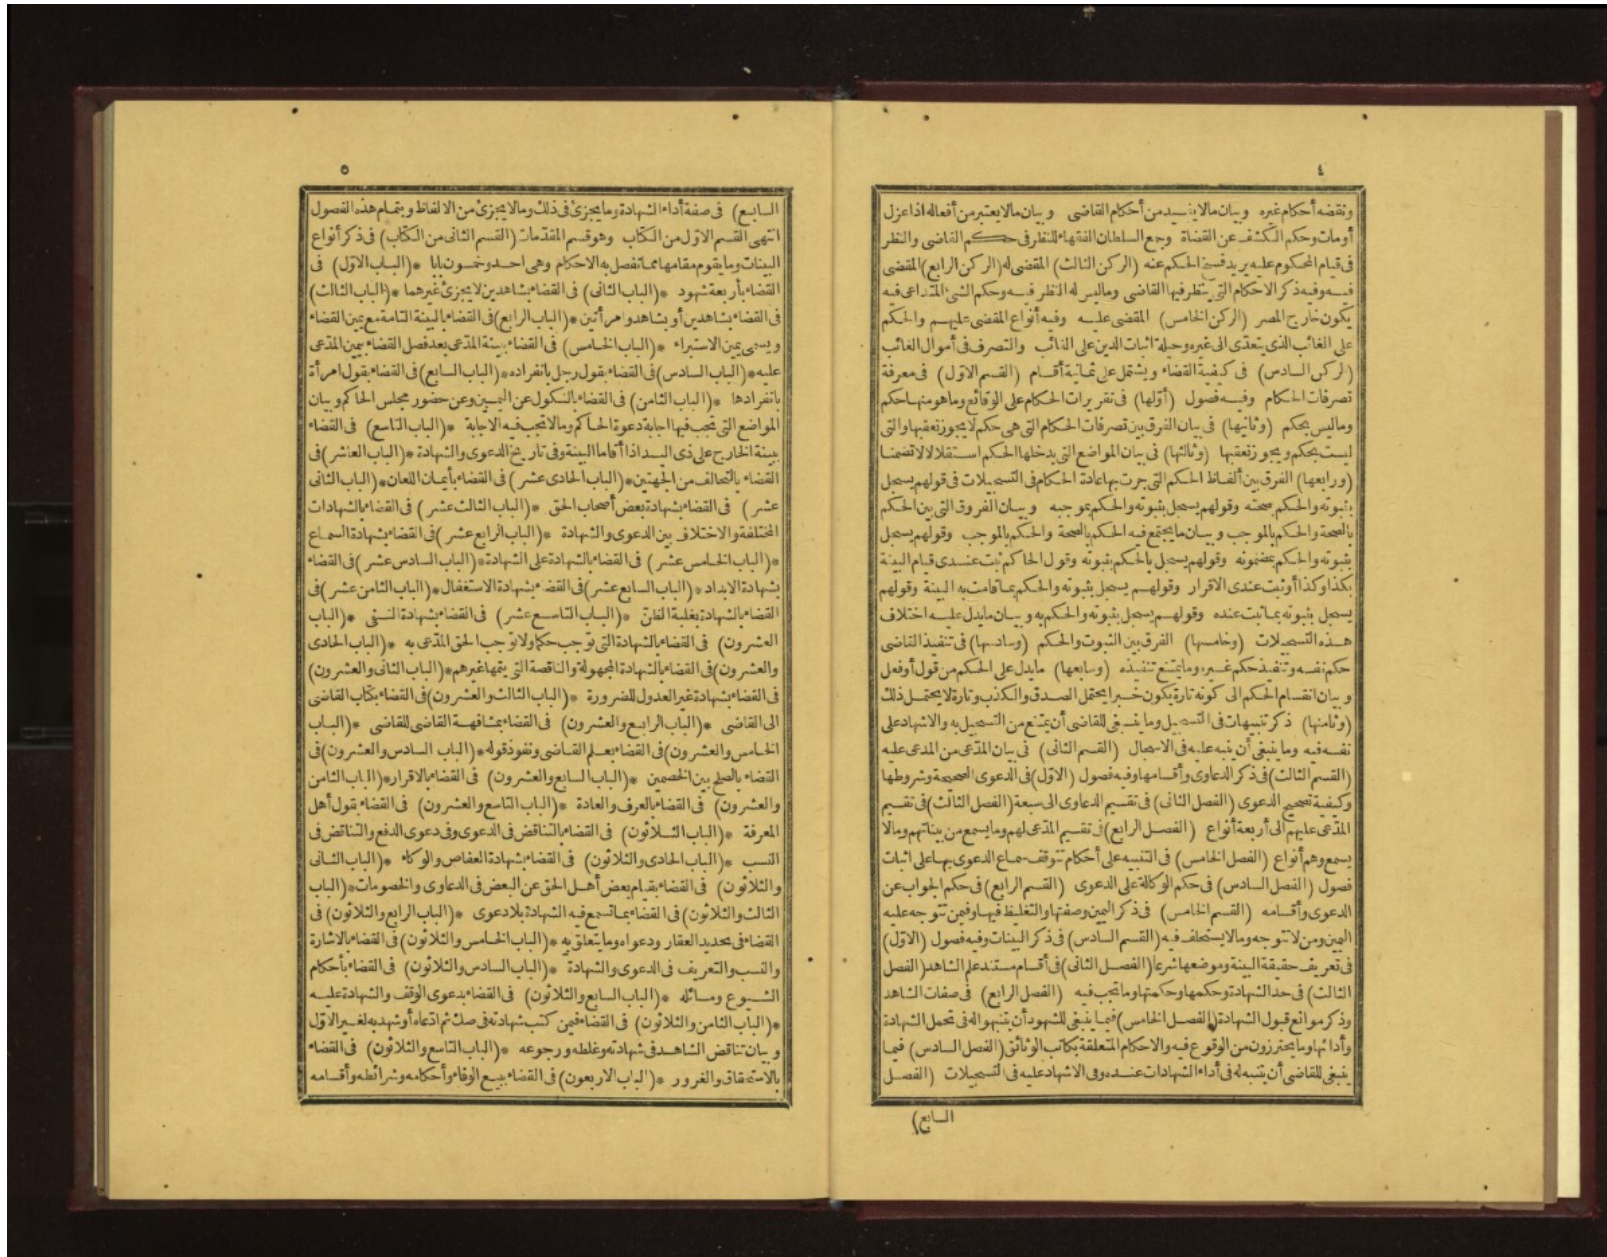 ٤
ونقضه أحكام غيره وبيان مالا ينفسد من أحكام القاضى وبيان مالا يعتبر من أفعاله اذا عزل
أومات وحكم الكشف عن القضاة وجمع السلطان الفقهاء للنظر فى حكم القاضى والنظر
فى قيام المحكوم عليه يريد فسخ الحكم عنه (الركن الثالث) المقضى له (الركن الرابع) المقضى
فيه وفيه ذكر الاحكام التى ينظر فيها القاضى وماليس له النظر فيه وحكم الشئ المتداعى فيه
يكون خارج المصر (الركن الخامس) المقضى عليه وفيه أنواع المقضى عليهم والحكم
على الغائب الذى يتعدى الى غيره وحيلة اثبات الدين على الغائب والتصرف فى أموال الغائب
(الركن السادس) فى كيفية القضاء ويشتمل على ثمانية أقسام (القسم الاول) فى معرفة
تصرفات الحكام وفيه فصول (أولها) فى تقريرات الحكام على الوقائع وماهو منها حكم
وماليس بحكم (وثانيها) فى بيان الفرق بين تصرفات الحكام التى هى حكم لايجوز تعقبها والتى
ليست بحكم ويجوز تعقبها (وثالثها) فى بيان المواضع التى يدخلها الحكم استقلالا لا تضمنا
(ورابعها) الفرق بين ألفاظ الحكم التى جرت بها عادة الحكام فى التسجيلات فى قولهم يسجل
بثبوته والحكم بصحته وقولهم يسجل بثبوته والحكم بموجبه وبيان الفروق التى بين الحكم
بالصحة والحكم بالموجب وبيان ما يجتمع فيه الحكم بالصحة والحكم بالموجب وقولهم يسجل
بثبوته والحكم بمضمونه وقولهم يسجل بالحكم بثبوته وقول الحاكم ثبت عندى قيام البينة
بكذا وكذا أو ثبت عندى الاقرار وقولهم يسجل بثبوته والحكم بما قامت به البينة وقولهم
يسجل بثبوته بما ثبت عنده وقولهم يسجل بثبوته والحكم به وبيان مايدل عليه اختلاف
هذه التسجيلات (وخامسها) الفرق بين الثبوت والحكم (وسادسها) فى تنفيذ القاضى
حكم نفسه وتنفيذ حكم غيره وما يمتنع تنفيذه (وسابعها) مايدل على الحكم من قول أو فعل
وبيان انقسام الحكم الى كونه تارة يكون خبرا يحتمل الصدق والكذب وتارة لا يحتمل ذلك
(وثامنها) ذكر تنبيهات فى التسجيل وما ينبغى للقاضى أن يمتنع من التسجيل به والاشهاد على
نفسه فيه وما ينبغى أن ينبه عليه فى الاسجال (القسم الثانى) فى بيان المدعى من المدعى عليه
(القسم الثالث) فى ذكر الدعاوى وأقسامها وفيه فصول (الاول) فى الدعوى الصحيحة وشروطها
وكيفية تصحيح الدعوى (الفصل الثانى) فى تقسيم الدعاوى الى سبعة (الفصل الثالث) فى تقسيم
المدعى عليهم الى أربعة أنواع (الفصل الرابع) فى تقسيم المدعى لهم وما يسمع من بيناتهم ومالا
يسمع وهم أنواع (الفصل الخامس) فى التنبيه على أحكام تتوقف سماع الدعوى بها على اثبات
فصول (الفصل السادس) فى حكم الوكالة على الدعوى (القسم الرابع) فى حكم الجواب عن
الدعوى وأقسامه (القسم الخامس) فى ذكر اليمين وصفتها والتغليظ فيها وفيمن تتوجه عليه
اليمين ومن لا تتوجه ومالا يستحلف فيه (القسم السادس) فى ذكر البينات وفيه فصول (الاول)
فى تعريف حقيقة البينة وموضعها شرعا (الفصل الثانى) فى أقسام مستند علم الشاهد (الفصل
الثالث) فى حد الشهادة وحكمها وحكمتها وما تجب فيه (الفصل الرابع) فى صفات الشاهد
وذكر موانع قبول الشهادة (الفصل الخامس) فيما ينبغى للشهود أن يتنبهوا له فى تحمل الشهادة
وأدائها وما يحترزون من الوقوع فيه والاحكام المتعلقة بكاتب الوثائق (الفصل السادس) فيما
ينبغى للقاضى أن يتنبه له فى أداء الشهادات عنده وفى الاشهاد عليه فى التسجيلات (الفصل
السابع)
٥
السابع) فى صفة أداء الشهادة وما يجزئ فى ذلك ومالا يجزئ من الالفاظ وبتمام هذه الفصول
انتهى القسم الاول من الكتاب وهو قسم المقدمات (القسم الثانى من الكتاب) فى ذكر أنواع
البينات وما يقوم مقامها مما تفصل به الاحكام وهى احد وخمسون بابا *(الباب الاول) فى
القضاء بأربعة شهود *(الباب الثانى) فى القضاء بشاهدين لا يجزئ غيرهما *(الباب الثالث)
فى القضاء بشاهدين أو بشاهد وامرأتين *(الباب الرابع) فى القضاء بالبينة التامة مع يمين القضاء
ويسمى يمين الاستبراء *(الباب الخامس) فى القضاء ببينة المدعى بعد فصل القضاء بيمين المدعى
عليه *(الباب السادس) فى القضاء بقول رجل بانفراده *(الباب السابع) فى القضاء بقول امرأة
بانفرادها *(الباب الثامن) فى القضاء بالنكول عن اليمين وعن حضور مجلس الحاكم وبيان
المواضع التى تجب فيها اجابة دعوة الحاكم ومالا تجب فيه الاجابة *(الباب التاسع) فى القضاء
ببينة الخارج على ذى اليد اذا أقاما البينة وفى تاريخ الدعوى والشهادة *(الباب العاشر) فى
القضاء بالتحالف من الجهتين *(الباب الحادى عشر) فى القضاء بأيمان اللعان *(الباب الثانى
عشر) فى القضاء بشهادة بعض أصحاب الحق *(الباب الثالث عشر) فى القضاء بالشهادات
المختلفة والاختلاف بين الدعوى والشهادة *(الباب الرابع عشر) فى القضاء بشهادة السماع
*(الباب الخامس عشر) فى القضاء بالشهادة على الشهادة *(الباب السادس عشر) فى القضاء
بشهادة الابداد *(الباب السابع عشر) فى القضاء بشهادة الاستغفال *(الباب الثامن عشر) فى
القضاء بالشهادة بغلبة الظن *(الباب التاسع عشر) فى القضاء بشهادة النفى *(الباب
العشرون) فى القضاء بالشهادة التى توجب حكما ولا توجب الحق المدعى به *(الباب الحادى
والعشرون) فى القضاء بالشهادة المجهولة والناقصة التى يتمها غيرهم *(الباب الثانى والعشرون)
فى القضاء بشهادة غير العدول للضرورة *(الباب الثالث والعشرون) فى القضاء بكتاب القاضى
الى القاضى *(الباب الرابع والعشرون) فى القضاء بمشافهة القاضى للقاضى *(الباب
الخامس والعشرون) فى القضاء بعلم القاضى ونفوذ قوله *(الباب السادس والعشرون) فى
القضاء بالصلح بين الخصمين *(الباب السابع والعشرون) فى القضاء بالاقرار *(الباب الثامن
والعشرون) فى القضاء بالعرف والعادة *(الباب التاسع والعشرون) فى القضاء بقول أهل
المعرفة *(الباب الثلاثون) فى القضاء بالتناقض فى الدعوى وفى دعوى الدفع والتناقض فى
النسب *(الباب الحادى والثلاثون) فى القضاء بشهادة العفاص والوكاء *(الباب الثانى
والثلاثون) فى القضاء بقيام بعض أهل الحق عن البعض فى الدعاوى والخصومات *(الباب
الثالث والثلاثون) فى القضاء بما تسمع فيه الشهادة بلا دعوى *(الباب الرابع والثلاثون) فى
القضاء فى تحديد العقار ودعواه وما يتعلق به *(الباب الخامس والثلاثون) فى القضاء بالاشارة
والنسب والتعريف فى الدعوى والشهادة *(الباب السادس والثلاثون) فى القضاء بأحكام
الشيوع ومسائله *(الباب السابع والثلاثون) فى القضاء بدعوى الوقف والشهادة عليه
*(الباب الثامن والثلاثون) فى القضاء فيمن كتب شهادته فى صك ثم ادعاه أو شهد به لغير الاول
وبيان تناقض الشاهد فى شهادته وغلطه ورجوعه *(الباب التاسع والثلاثون) فى القضاء
بالاستحقاق والغرور *(الباب الاربعون) فى القضاء ببيع الوفاء وأحكامه وشرائطه وأقسامه